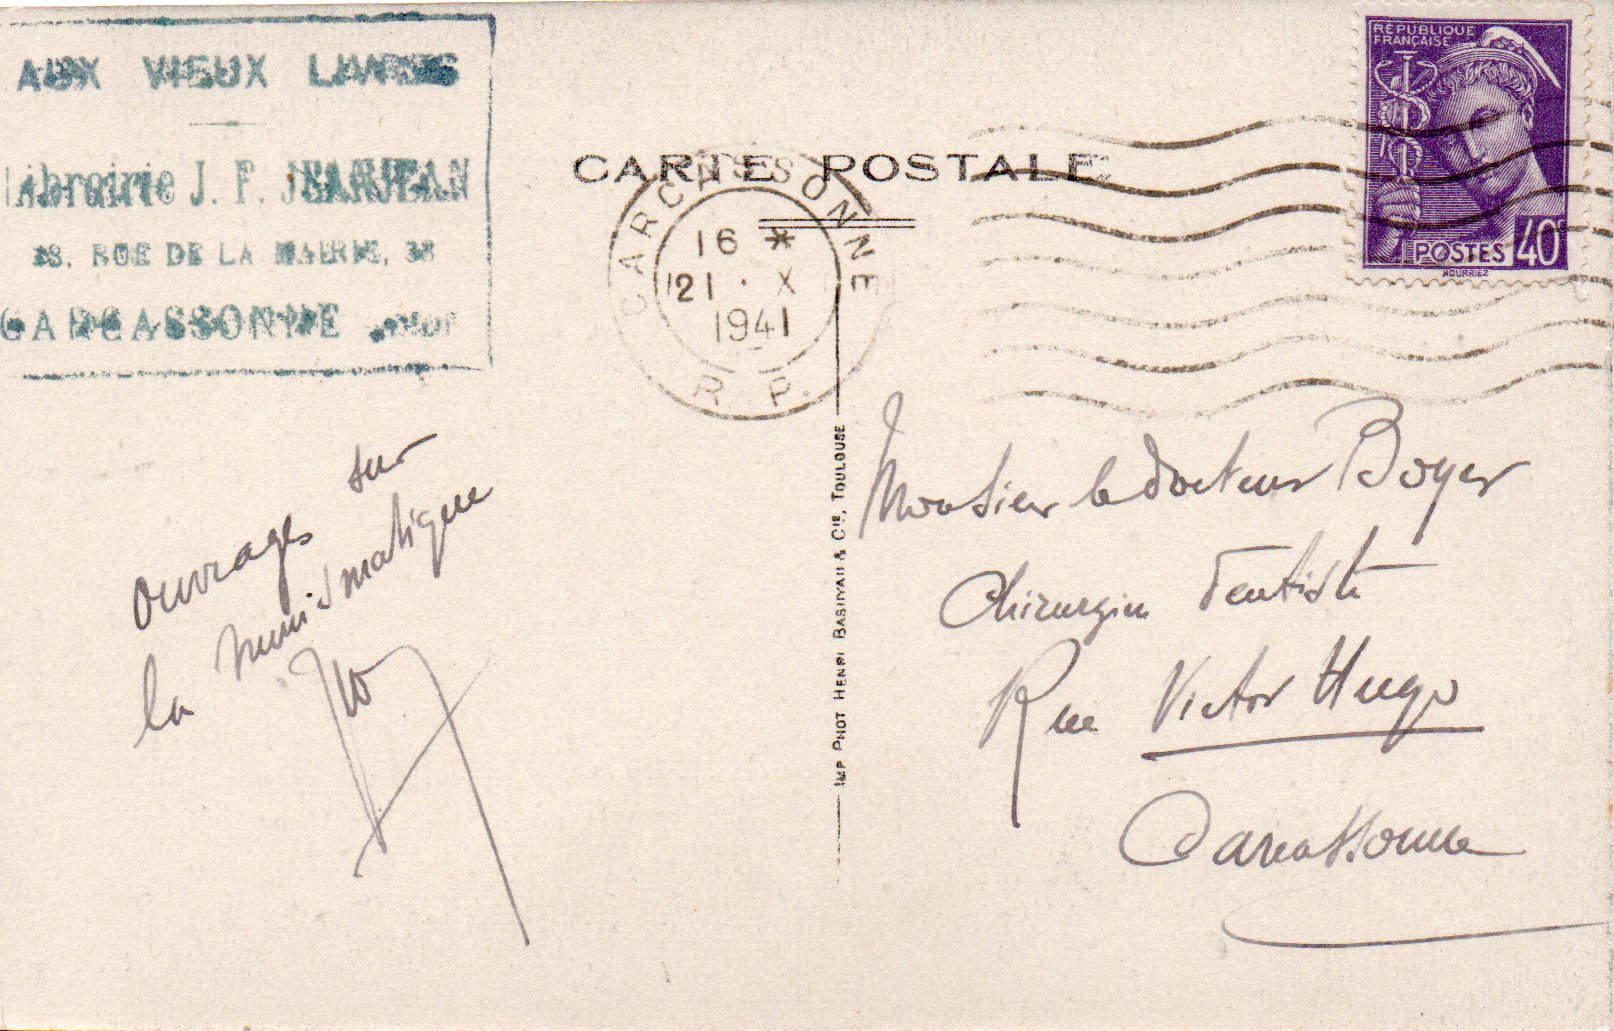 AUX VIEUX LIVRES
Librairie J. F. JEANJEAN
38, RUE DE LA MAIRIE, 38
CARCASSONNE
CARTE POSTALE
CARCASSONNE
16 *
21 · X
1941
R. P.
RÉPUBLIQUE
FRANÇAISE
POSTES 40c
HOURRIEZ
ouvrages sur
la numismatique
IMP PHOT HENRI BASUYAU & CIE, TOULOUSE
Monsieur le docteur Boyer
Chirurgien Dentiste
Rue Victor Hugo
Carcassonne